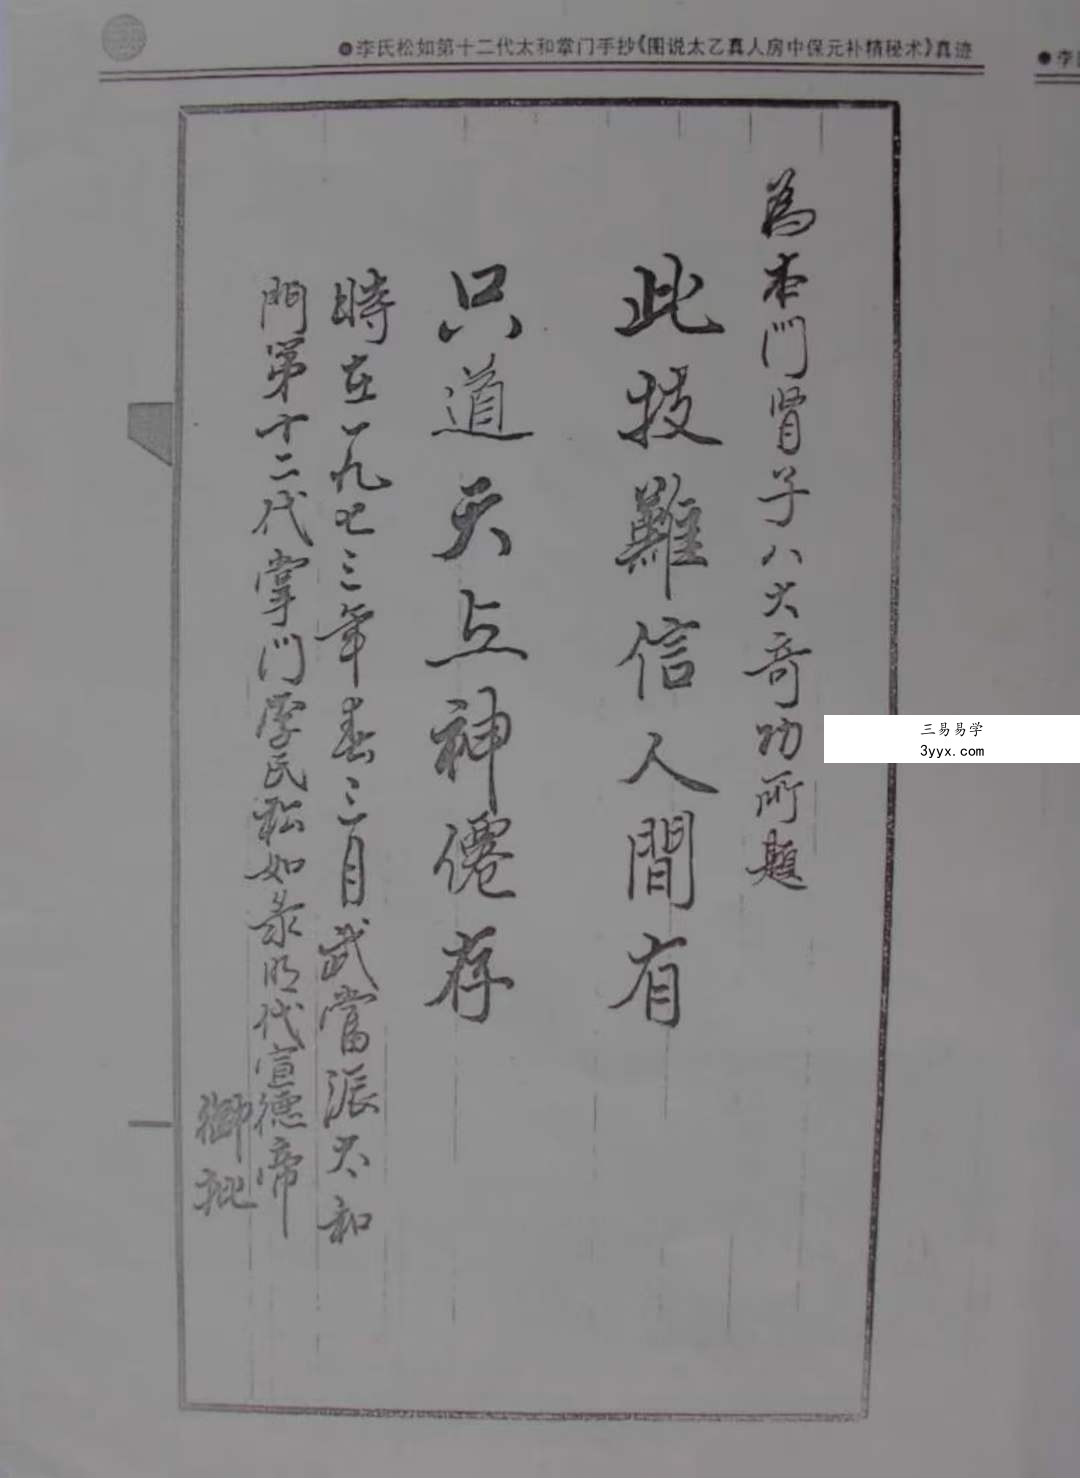 ●李氏松如第十二代太和掌门手抄《图说太乙真人房中保元补精秘术》真迹
●李
為本门肾子八大奇功所题
此技難信人間有
只道天上神僊存
時在一九七三年春三月武當派太和
門第十二代掌门李氏松如录明代宣德帝
御批
三易易学
3yyx.com